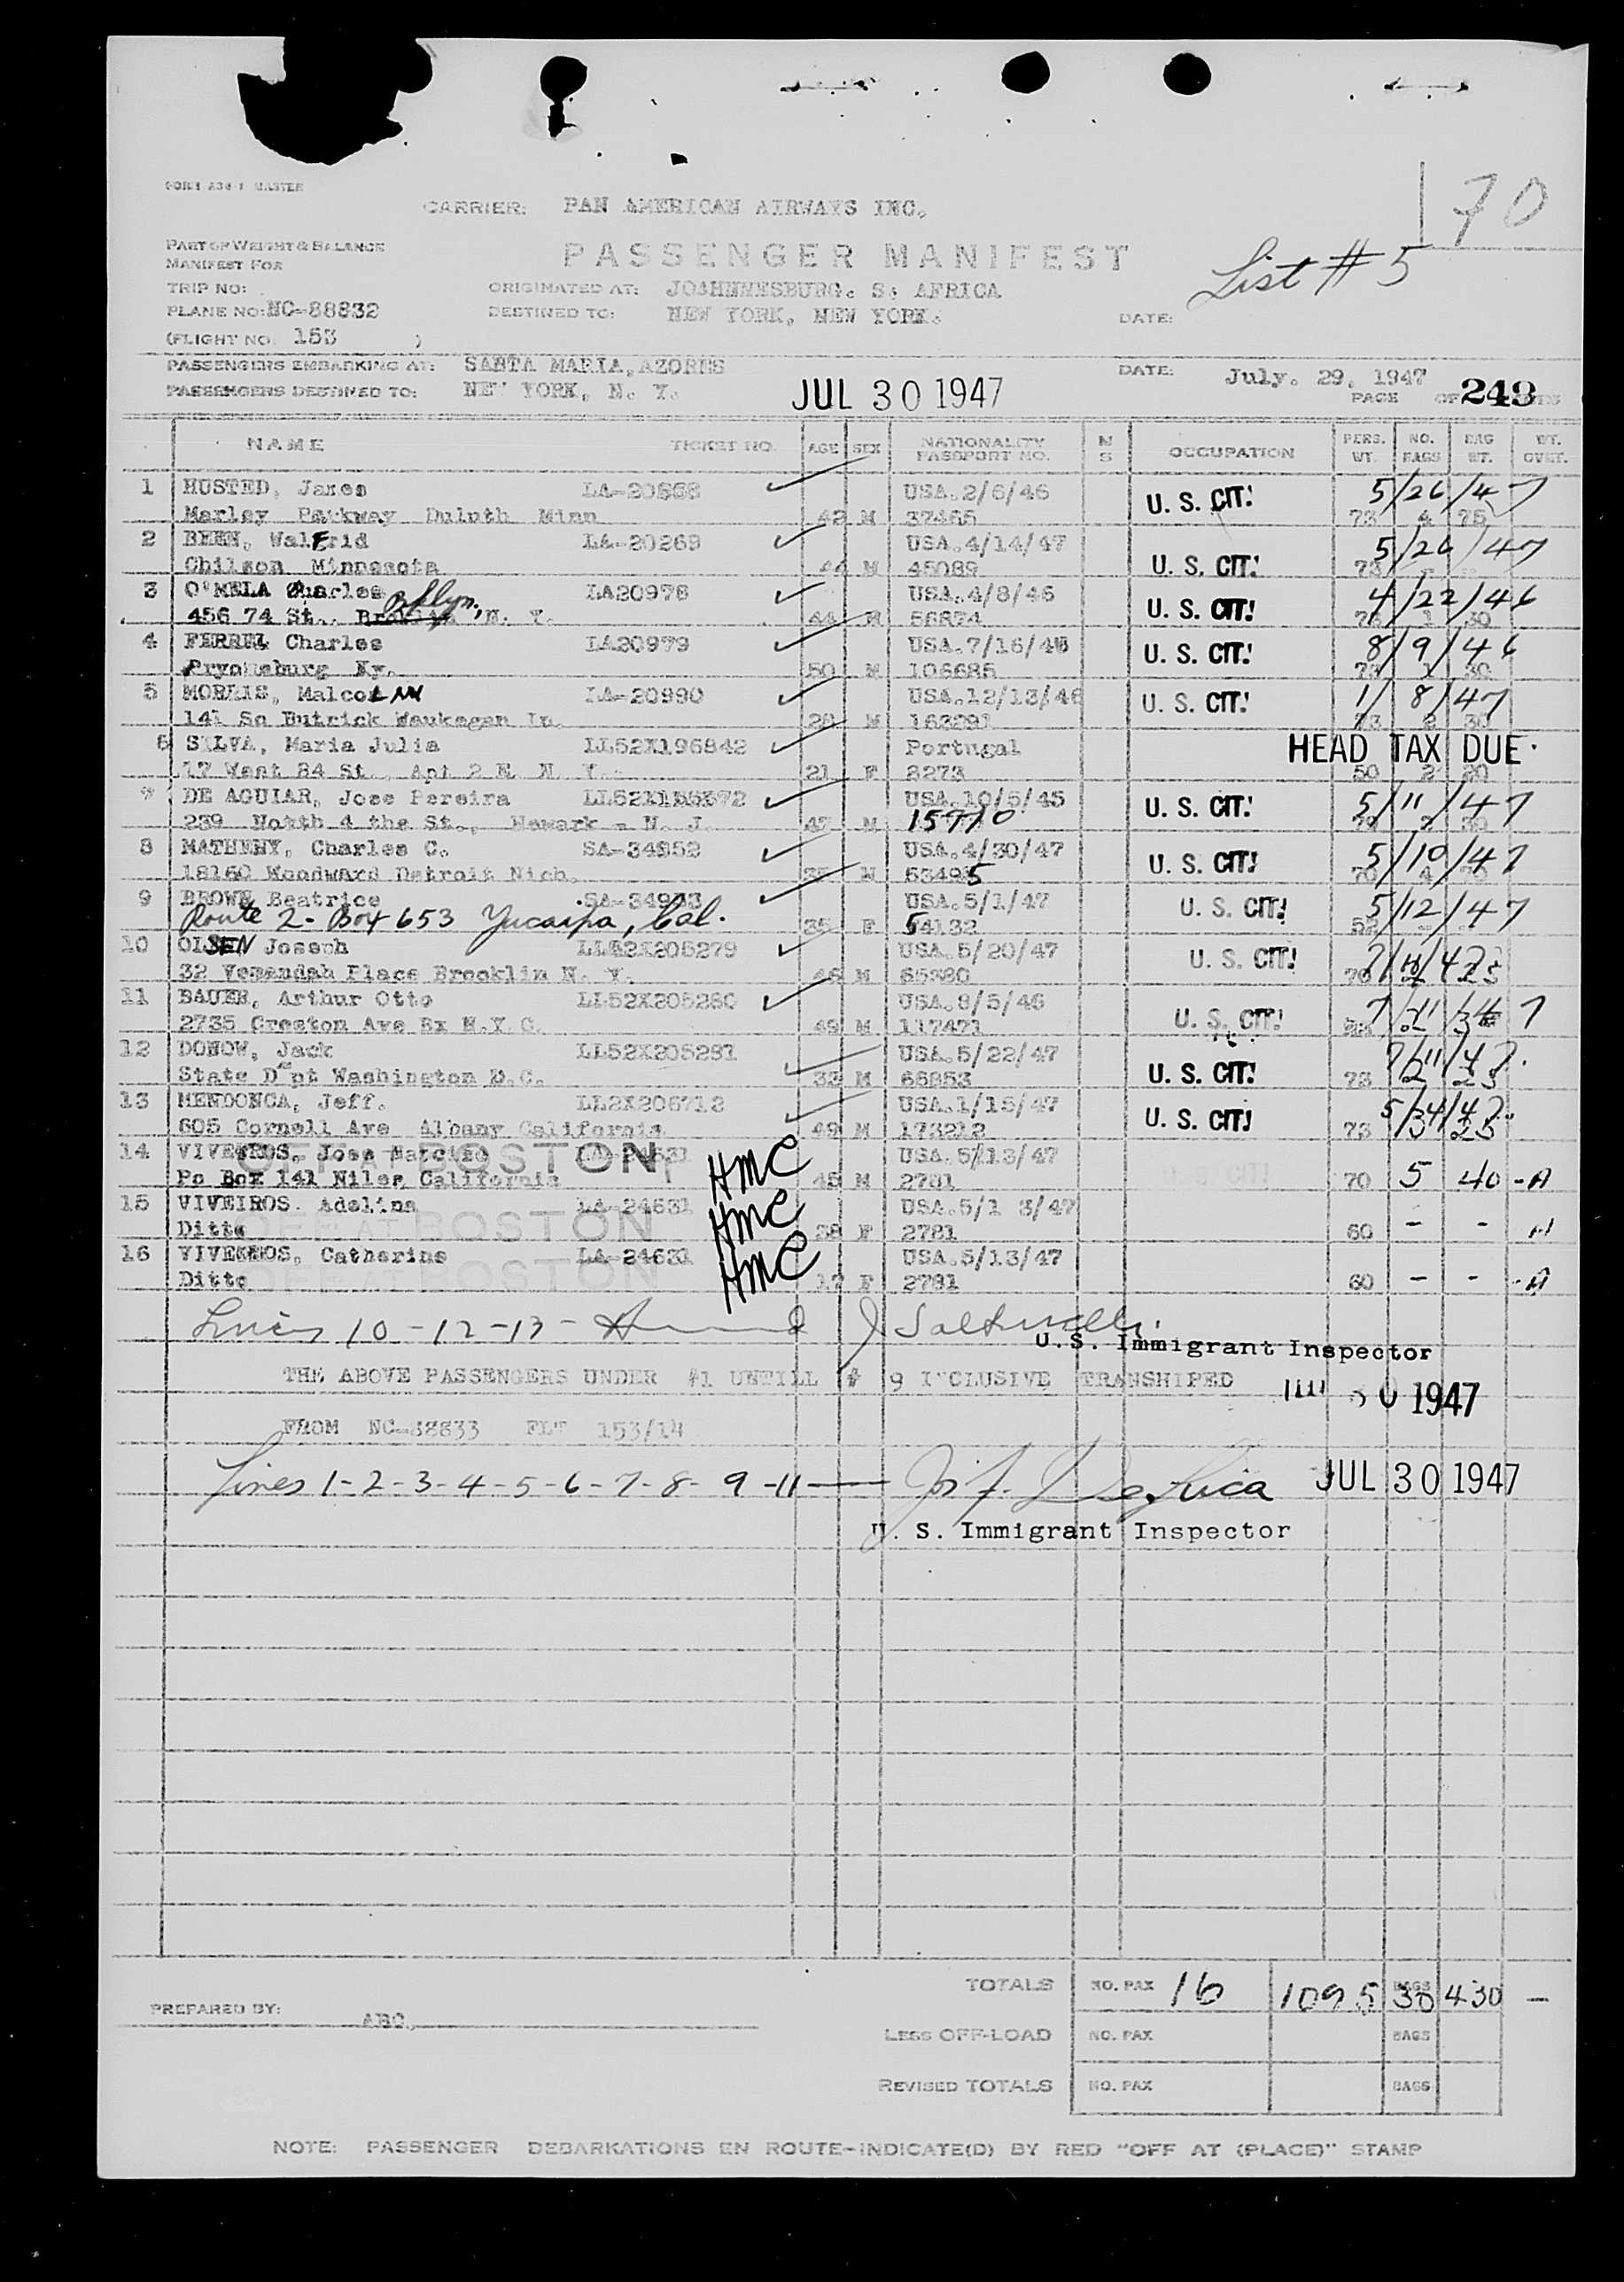 70
CARRIER: PAN AMERICAN AIRWAYS INC.
PART OF WEIGHT & BALANCE
MANIFEST FOR
PASSENGER MANIFEST
List # 5
TRIP NO:
ORIGINATED AT: JOAHNNESBURG. S. AFRICA
PLANE NO: NC-88832
DESTINED TO: NEW YORK, NEW YORK.
DATE:
(FLIGHT NO. 153 )
PASSENGERS EMBARKING AT: SANTA MARIA, AZORES
DATE: July. 29, 1947
PASSENGERS DESTINED TO: NEW YORK, N. Y.
JUL 30 1947
PAGE OF 249
NAME TICKET NO. AGE SEX NATIONALITY PASSPORT NO. N S OCCUPATION PERS. WT. NO. BAGS BAG WT. WT. OVET.
1 HUSTED, James USA.2/6/46 U. S. CIT. 5/26/47
Marley Parkway Duluth Minn 42 M 37465 73 4 75
2 BEEN, Walfrid LA-20269 USA.4/14/47 U. S. CIT. 5/26/47
Chilson Minnesota 44 M 45089 73
3 O'MELA Charles LA20978 USA.4/8/46 U. S. CIT. 4/22/46
456 74 St., Bklyn, N. Y. 44 M 56874 73 1 30
4 FERREL Charles LA20979 USA.7/16/46 U. S. CIT. 8/9/46
Ky. 50 M 106685 73 1 30
5 MORRIS, Malcolm LA-20990 USA.12/13/46 U. S. CIT. 1/8/47
141 So Butrick Waukegan In. 28 M 163291 73 2 30
6 SILVA, Maria Julia LL52X196842 Portugal HEAD TAX DUE
17 West 84 St., Apt 2 E. N. Y. 21 F 3273 50 2 20
7 DE AGUIAR, Jose Pereira USA.10/5/45 U. S. CIT. 5/11/47
239 North 4 the St., Newark - N. J. 47 M 15970
8 MATHENY, Charles C. SA-34952 USA.4/30/47 U. S. CIT. 5/10/47
18160 Woodward Detroit Mich. M 63495 70 4
9 BROWN Beatrice USA.5/1/47 U. S. CIT. 5/12/47
Route 2- Box 653 Yucaipa, Cal. 35 F 54132 52
10 OLSEN Joseph LL52X205279 USA.5/20/47 U. S. CIT.
32 Verandah Place Brooklin N. Y. 46 M 65380 70
11 BAUER, Arthur Otto LL52X205280 USA.8/5/46 U. S. CIT.
2735 Creston Ave Bx N.Y.C. 49 M 117471
12 DONOW, Jack LL52X205281 USA.5/22/47 U. S. CIT. 7/11/47
State Dept Washington D.C. 33 M 66853 73 2 25
13 MENDONCA, Jeff. LL2X206712 USA.1/15/47 U. S. CIT.
605 Cornell Ave Albany California 49 M 173212 73 3 25
14 VIVEIROS, Jose LA-24631 HMC USA.5/13/47
OFF AT BOSTON
Po Box 141 Niles, California 45 M 2781 70 5 40 -A
15 VIVEIROS. Adelina LA-24631 HMC USA.5/1 3/47
OFF AT BOSTON
Ditto 38 F 2781 60 - -
16 VIVEIROS, Catherine LA-24631 HMC USA.5/13/47
OFF AT BOSTON
Ditto 17 F 2781 60 - - -A
Lines 10-12-13-
U.S. Immigrant Inspector
THE ABOVE PASSENGERS UNDER #1 UNTILL # 9 INCLUSIVE TRANSHIPED
30 1947
FROM NC-88833 FLT 153/14
Lines 1-2-3-4-5-6-7-8-9-11
JUL 30 1947
U. S. Immigrant Inspector
TOTALS NO. PAX 16 1095 BAGS 30 430 -
PREPARED BY: ABC.
LESS OFF-LOAD NO. PAX BAGS
REVISED TOTALS NO. PAX BAGS
NOTE: PASSENGER DEBARKATIONS EN ROUTE-INDICATE(D) BY RED "OFF AT (PLACE)" STAMP